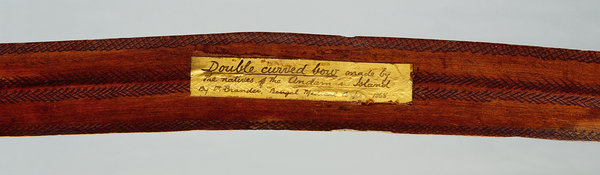 Double curved bow made by
the natives of the Andaman Island
By Dr Brander, Bengal